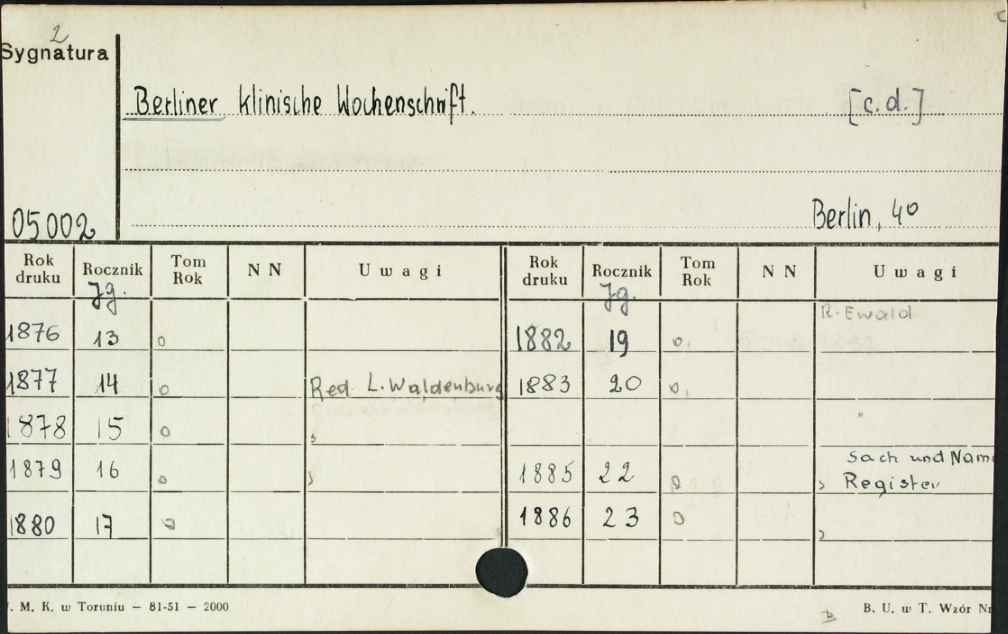 2
Sygnatura
Berliner klinische Wochenschrift. [c.d.]
05002 Berlin, 4º
Rok druku Rocznik Tom Rok N N Uwagi Rok druku Rocznik Tom Rok N N Uwagi
Jg. Jg.
R. Ewald
1876 13 o 1882 19 o,
1877 14 o Red. L. Waldenburg 1883 20 o,
1878 15 o "
1879 16 o " 1885 22 o " Sach und Nam
Register
1880 17 o 1886 23 o "
. M. K. w Toruniu — 81-51 — 2000 B. U. w T. Wzór Nr